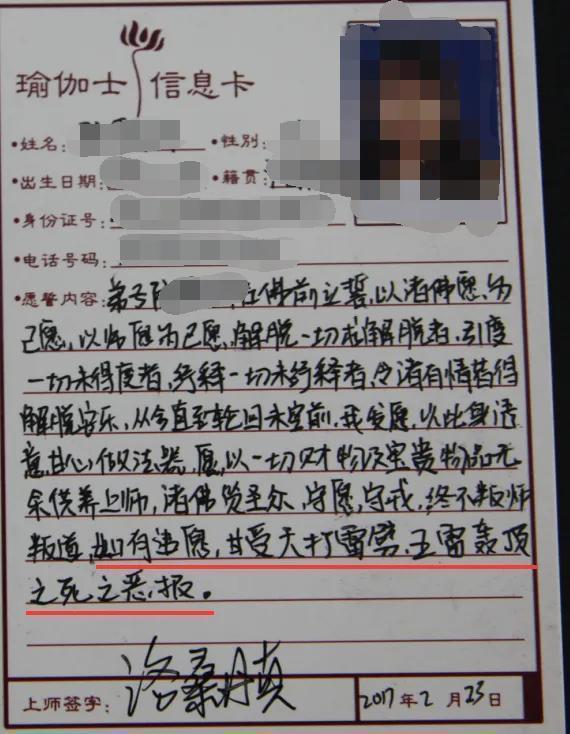 瑜伽士 信息卡
•姓名: •性别:
•出生日期: •籍贯:
•身份证号:
•电话号码:
•愿誓内容: 弟子 在佛前立誓,以诸佛愿为
己愿,以师愿为己愿,解脱一切未解脱者,引度
一切未得度者,一切未者,令诸有情皆得
解脱安乐,从今直至轮回未空前,我发愿,以此身语
意,甘心做法器,愿以一切财物及宝贵物品无
余供养上师,诸佛贤圣众,守愿,守戒,终不叛师
叛道,如有违愿,甘受天打雷劈,五雷轰顶
之死之恶报。
上师签字: 洛桑丹真 2017年2月23日